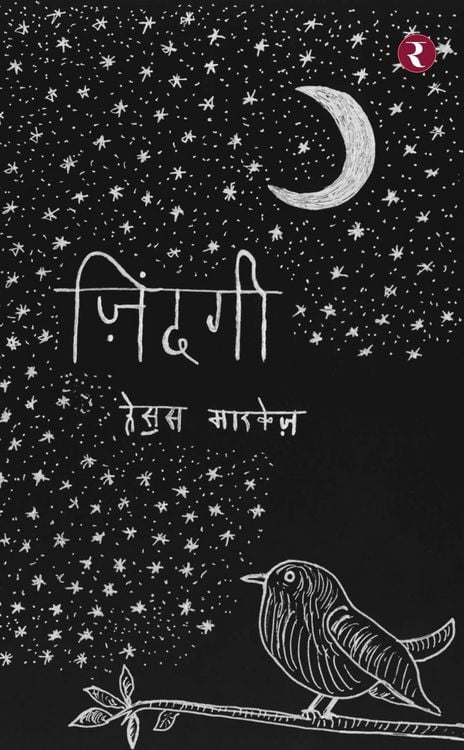 र
ज़िंदगी
हेसुस मारकेज़